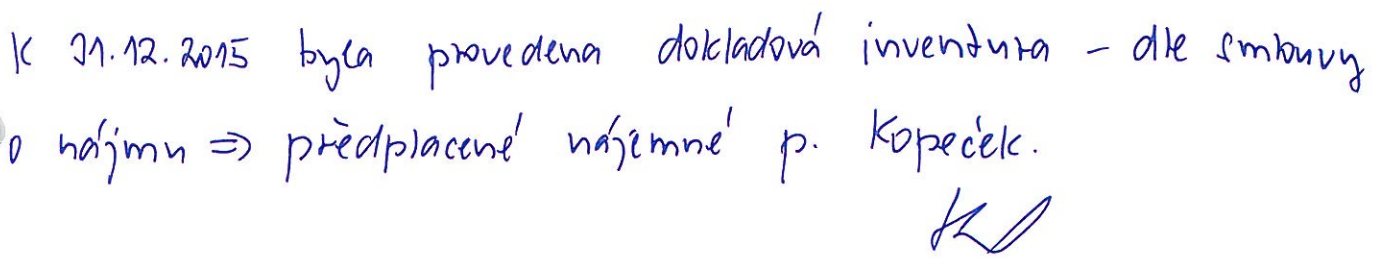 K 31.12.2015 byla provedena dokladová inventura - dle smlouvy
o nájmu => předplacené nájemné p. Kopeček.